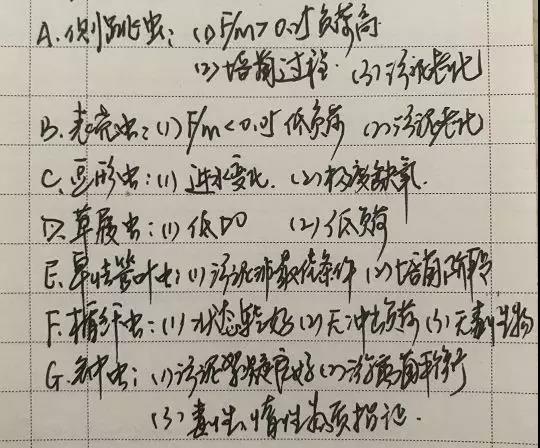 A.侧跳虫：(1)F/m>0.25负荷高
(2)培菌过程 (3)污泥老化
B.表壳虫：(1)F/m<0.05低负荷 (2)污泥老化
C.豆形虫：(1)进水变化.(2)极度缺氧.
D.草履虫：(1)低DO (2)低负荷
E.管叶虫：(1)污泥条件 (2)培菌阶段
F.楯纤虫：(1)状态较好(2)无冲击负荷(3)无毒性物
G.钟虫：(1)污泥凝度好(2)菌平衡
(3)毒性、惰性物质指证.